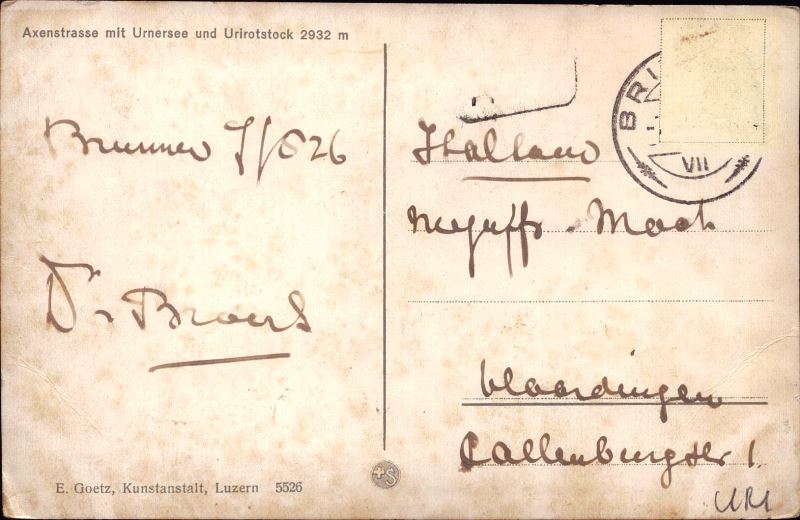 Axenstrasse mit Urnersee und Urirotstock 2932 m
Brunnen 7/8 26
Dr Broers
E. Goetz, Kunstanstalt, Luzern 5526
BRI
VII
Holland
Vlaardingen
1
URI